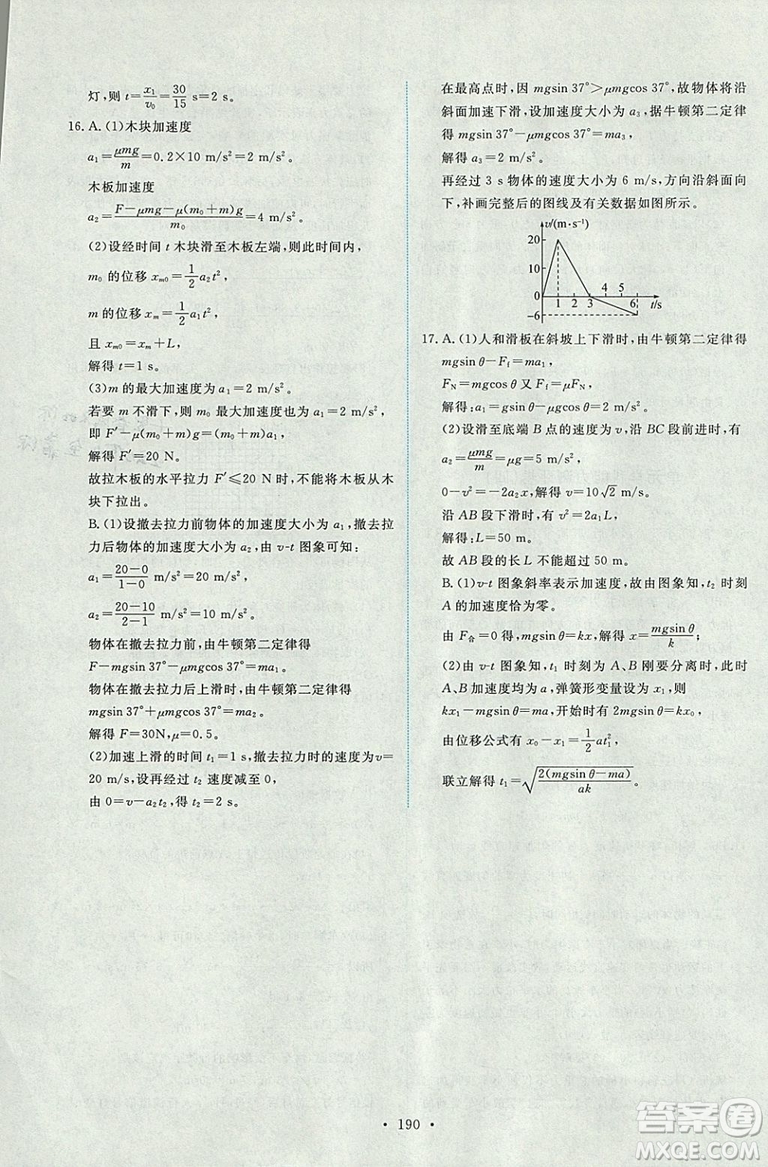 灯,则 t=x₁/v₀=30/15 s=2 s。
16. A. (1)木块加速度
a₁=μmg/m=0.2×10 m/s²=2 m/s²。
木板加速度
a₂=(F-μmg-μ(m₀+m)g)/m₀=4 m/s²。
(2)设经时间 t 木块滑至木板左端,则此时间内,
m₀ 的位移 xₘ₀=1/2 a₂t²,
m 的位移 xₘ=1/2 a₁t²,
且 xₘ₀=xₘ+L,
解得 t=1 s。
(3)m 的最大加速度为 a₁=2 m/s²。
若要 m 不滑下,则 m₀ 最大加速度也为 a₁,
即 F′-μ(m₀+m)g=(m₀+m)a₁。
解得 F′=20 N。
故拉木板的水平拉力 F′≤20 N 时,不能将木板从木
块下拉出。
B. (1)设撤去拉力前物体的加速度大小为 a₁,撤去拉
力后物体的加速度大小为 a₂,由 v-t 图象可知:
a₁=(20-0)/(1-0) m/s²=20 m/s²,
a₂=(20-10)/(2-1) m/s²=10 m/s²。
物体在撤去拉力前,由牛顿第二定律得
F-mgsin 37°-μmgcos 37°=ma₁。
物体在撤去拉力后上滑时,由牛顿第二定律得
mgsin 37°+μmgcos 37°=ma₂。
解得 F=30N,μ=0.5。
(2)加速上滑的时间 t₁=1 s,撤去拉力时的速度为 v=
20 m/s,设再经过 t₂ 速度减至 0,
由 0=v-a₂t₂,得 t₂=2 s。
在最高点时,因 mgsin 37°>μmgcos 37°,故物体将沿
斜面加速下滑,设加速度大小为 a₃,据牛顿第二定律
得 mgsin 37°-μmgcos 37°=ma₃,
解得 a₃=2 m/s²。
再经过 3 s 物体的速度大小为 6 m/s,方向沿斜面向
下,补画完整后的图线及有关数据如图所示。
v/(m·s⁻¹)
20
10
0
-6
1 2 3 4 5 6 t/s
17. A. (1)人和滑板在斜坡上下滑时,由牛顿第二定律得
mgsin θ-Ff=ma₁,
FN=mgcos θ 又 Ff=μFN。
解得:a₁=2 m/s²。
(2)设滑至底端 B 点的速度为 v,沿 BC 段前进时,有
a₂=μmg/m=μg=5 m/s²,
0-v²=-2a₂x,解得 v=10√2 m/s。
沿 AB 段下滑时,有 v²=2a₁L,
解得:L=50 m。
故 AB 段的长 L 不能超过 50 m。
B. (1)v-t 图象斜率表示加速度,故由图象知,t₂ 时刻
A 的加速度恰为零。
由 F合=0 得,mgsin θ=kx,解得 x=mgsin θ/k;
(2)由 v-t 图象知,t₁ 时刻为 A、B 刚要分离时,此时
A、B 加速度均为 a,弹簧形变量为 x₁,则
kx₁-mgsin θ=ma,开始时有 2mgsin θ=kx₀,
由位移公式有 x₀-x₁=1/2 at₁²,
联立解得 t₁=√(2(mgsin θ-ma)/ak)。
190
答案圈
MXQE.COM